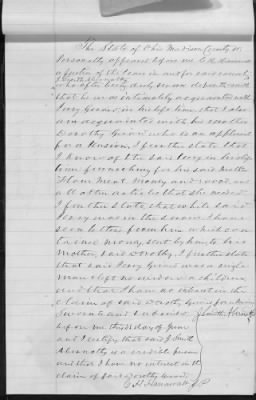 The State of Ohio Madison County ss.
Personally appeared before me
a Justice of the Peace in and for said county
J. Smith Abernathy
who after being duly sworn deposeth and saith
that he was intimately acquainted with
Perry in his life time, that I also
am acquainted with his mother
Dorothy who is an applicant
for a Pension, I further state that
I know of the said Perry in his life
time furnishing for his said Mother
Flour Meat Money and wood and
all other articles that she needed
I further state that while said
Perry was in the service I have
seen letters from him which con-
tained money, sent by him to his
Mother, said Dorothy. I further state
that said Perry was a single
man left no widow or children
and that I have no interest in the
claim of said Dorothy
Sworn to and subscribed
before me this day of June
and I certify that said J. Smith
Abernathy is a credible person
and that I have no interest in the
claim of said Dorothy